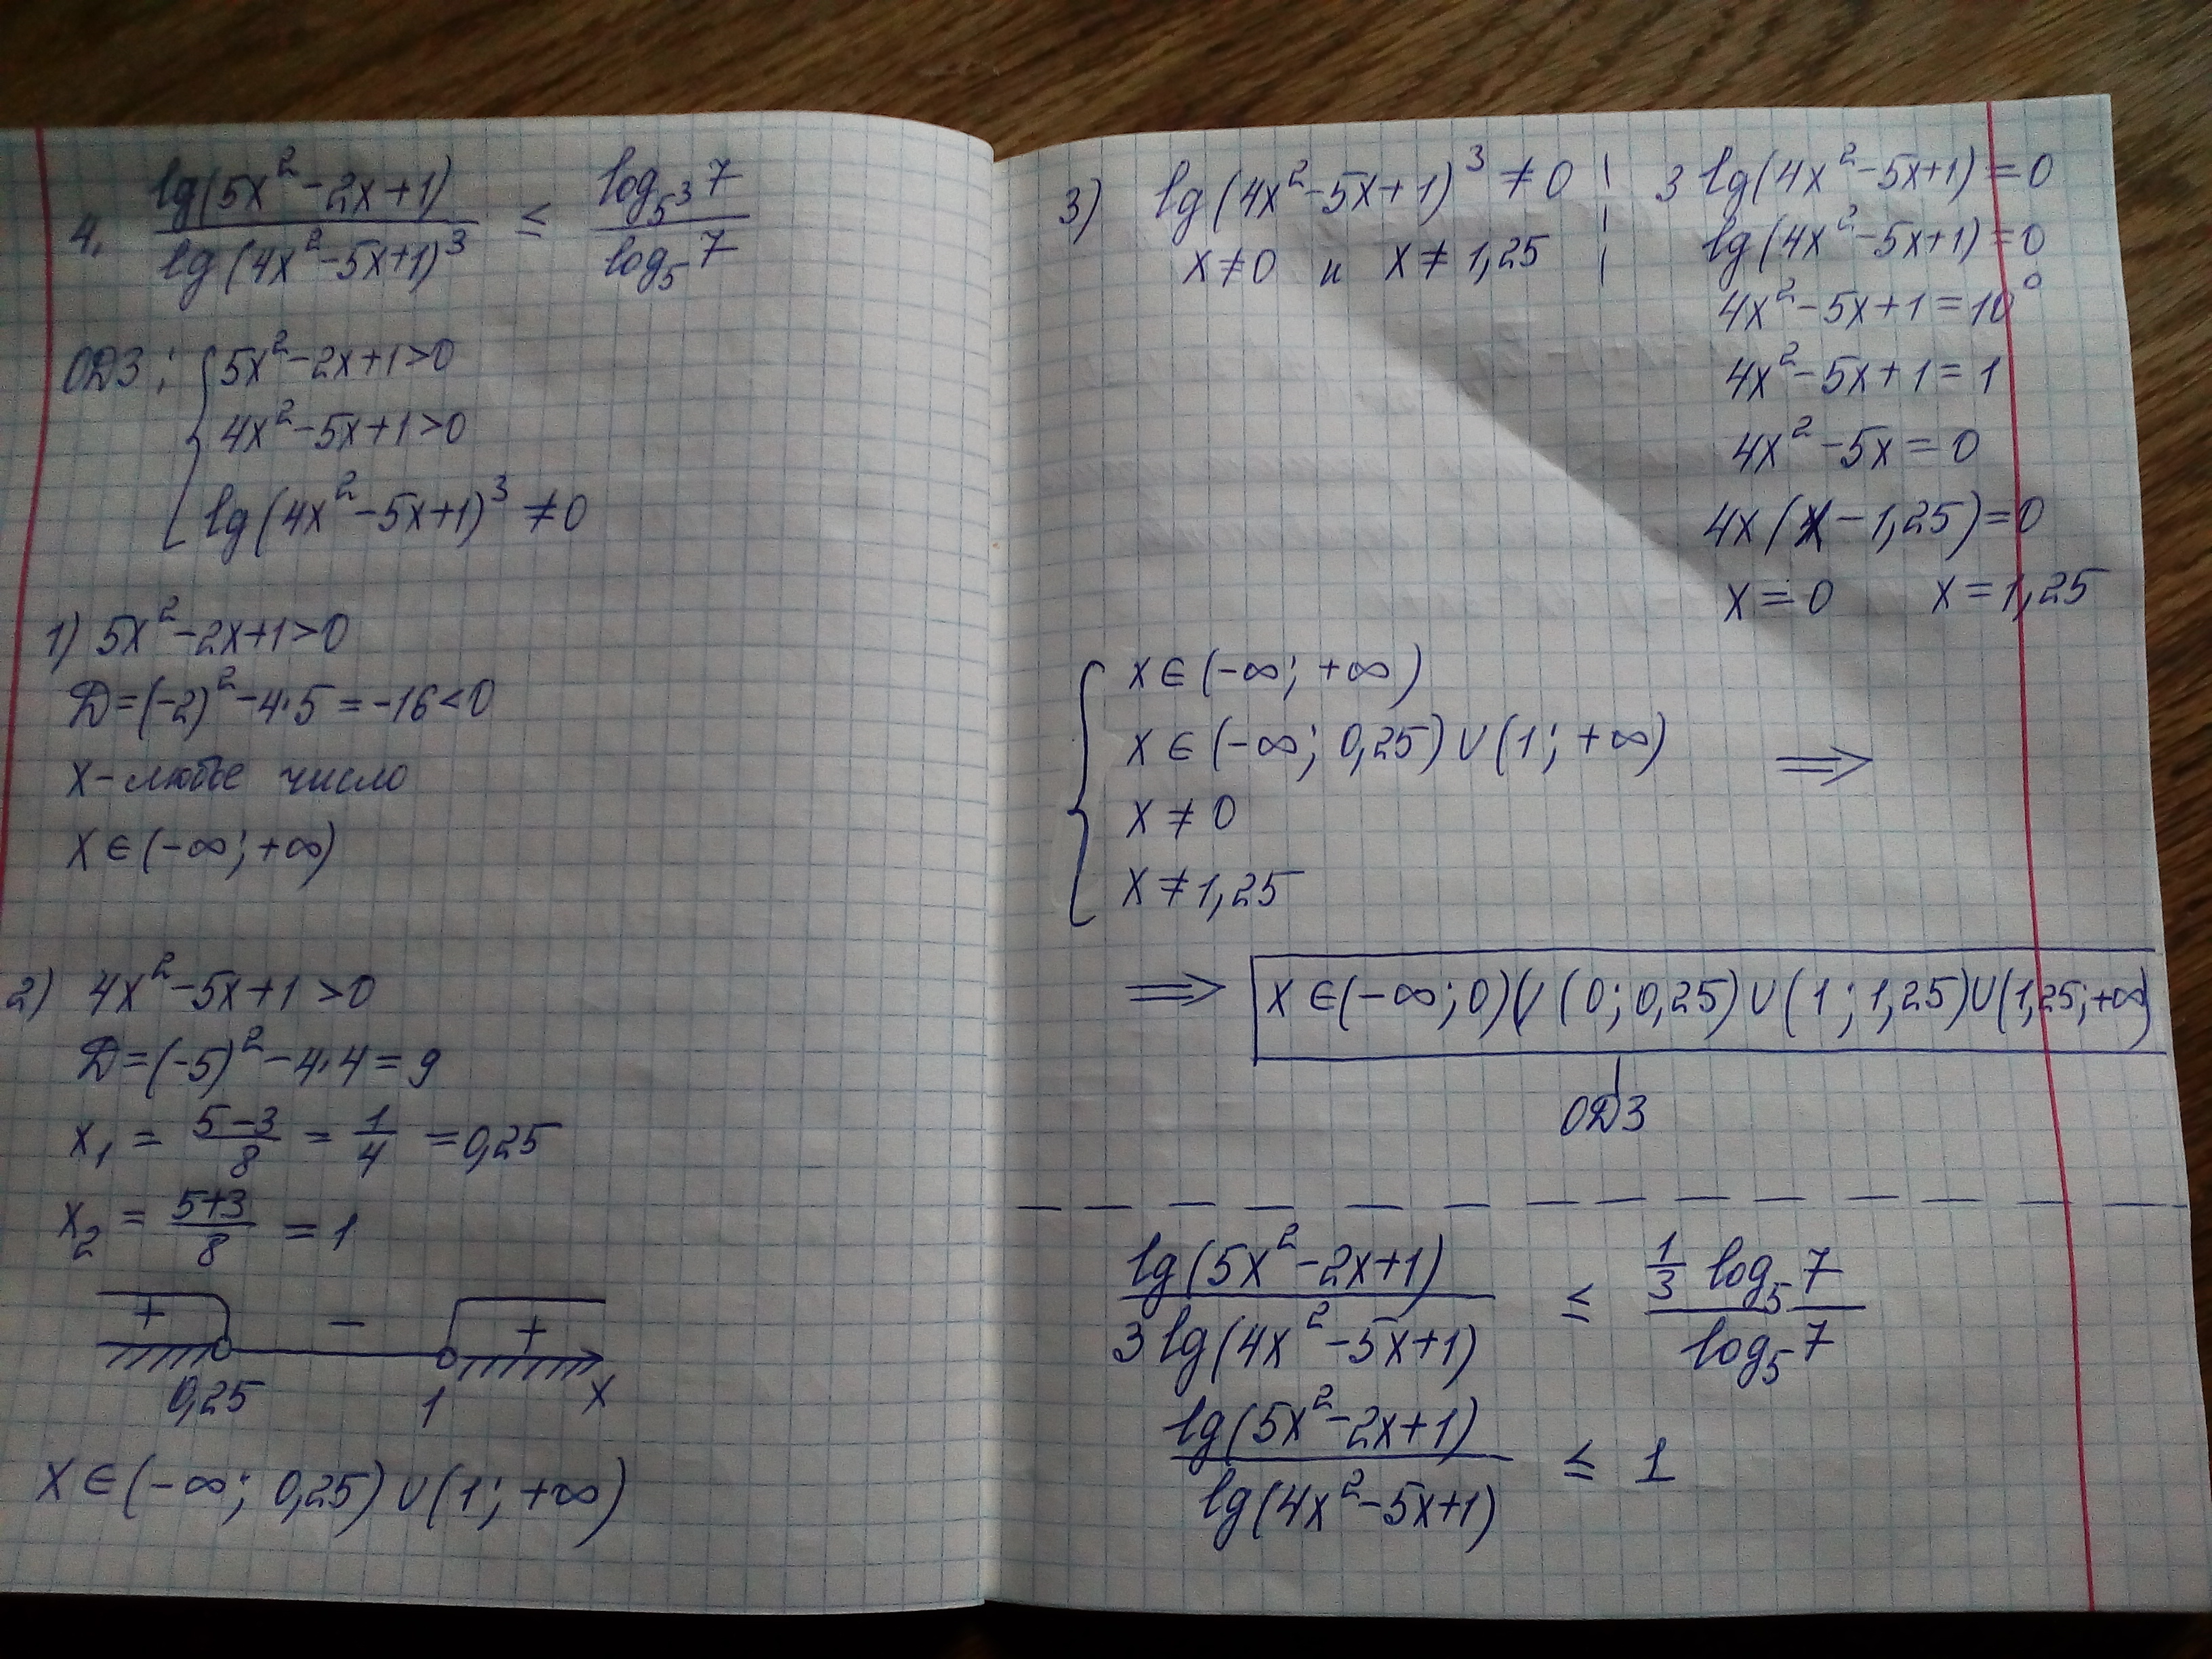 4. lg(5x²-2x+1) / lg(4x²-5x+1)³ ≤ log₅³7 / log₅7
ОДЗ: { 5x²-2x+1>0
4x²-5x+1>0
lg(4x²-5x+1)³ ≠0
1) 5x²-2x+1>0
Д=(-2)²-4·5=-16<0
x-любое число
x∈(-∞;+∞)
2) 4x²-5x+1>0
Д=(-5)²-4·4=9
x₁ = (5-3)/8 = 1/4 =0,25
x₂ = (5+3)/8 = 1
+ - +
0,25 1 x
x∈(-∞; 0,25)∪(1; +∞)
3) lg(4x²-5x+1)³ ≠0
x≠0 и x≠1,25
3 lg(4x²-5x+1)=0
lg(4x²-5x+1)=0
4x²-5x+1=10⁰
4x²-5x+1=1
4x²-5x=0
4x(x-1,25)=0
x=0 x=1,25
{ x∈(-∞; +∞)
x∈(-∞; 0,25)∪(1; +∞) ⟹
x≠0
x≠1,25
⟹ x∈(-∞;0)∪(0;0,25)∪(1;1,25)∪(1,25;+∞)
ОДЗ
lg(5x²-2x+1) / 3lg(4x²-5x+1) ≤ 1/3 log₅7 / log₅7
lg(5x²-2x+1) / lg(4x²-5x+1) ≤ 1